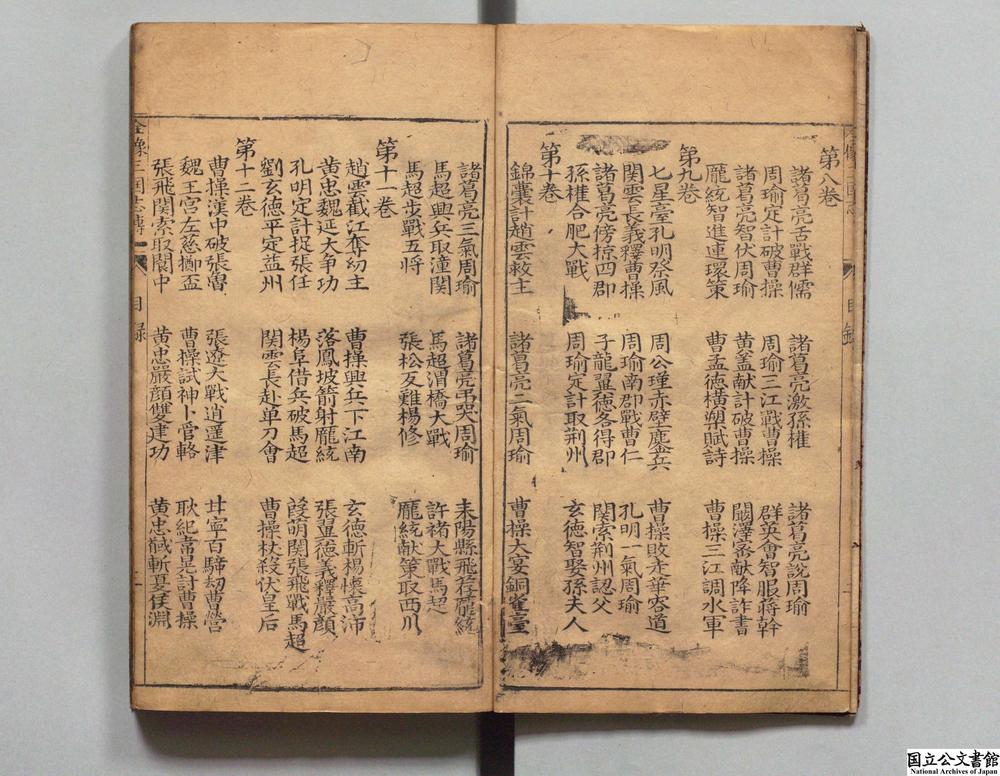 第八卷
諸葛亮舌戰群儒 諸葛亮激孫權 諸葛亮說周瑜
周瑜定計破曹操 周瑜三江戰曹操 群英會智服蔣幹
諸葛亮智伏周瑜 黃盖献計破曹操 闞澤宻献降詐書
龐統智進連環策 曹孟德橫槊賦詩 曹操三江調水軍
第九卷
七星臺孔明祭風 周公瑾赤壁鏖兵 曹操敗走華容道
関雲長義釋曹操 周瑜南郡戰曹仁 孔明一氣周瑜
諸葛亮傍掠四郡 子龍翼德各得郡 関索荆州認父
孫權合肥大戰 周瑜定計取荆州 玄德智娶孫夫人
第十卷
錦囊計趙雲救主 諸葛亮二氣周瑜 曹操大宴銅雀臺
諸葛亮三氣周瑜 諸葛亮弔哭周瑜 耒陽縣飛荐龐統
馬超興兵取潼関 馬超渭橋大戰 許褚大戰馬超
馬超步戰五將 張松反難楊修 龐統献策取西川
第十一卷
趙雲截江奪幼主 曹操興兵下江南 玄德斬楊懷高沛
黃忠魏延大争功 落鳳坡箭射龐統 張翼德義釋嚴顏
孔明定計捉張任 楊阜借兵破馬超 葭萌関張飛戰馬超
劉玄德平定益州 関雲長赴单刀會 曹操杖殺伏皇后
第十二卷
曹操漢中破張魯 張遼大戰逍遥津 甘寧百騎刼曹營
魏王宫左慈擲盃 曹操試神卜管輅 耿紀韋晃討曹操
張飛関索取閬中 黃忠嚴顏雙建功 黃忠馘斬夏侯淵
全像三国志傳 目録
国立公文書館
National Archives of Japan